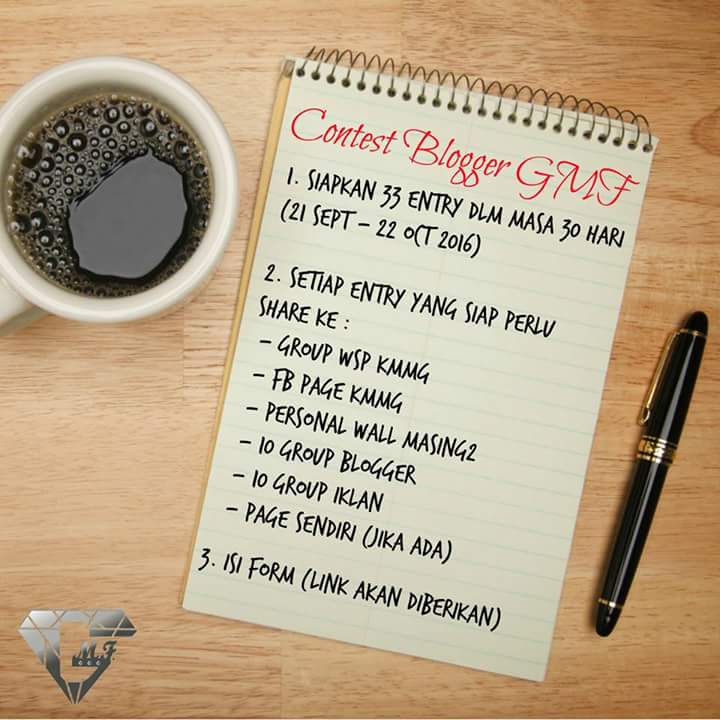 Contest Blogger GMF
1. SIAPKAN 33 ENTRY DLM MASA 30 HARI
(21 SEPT - 22 OCT 2016)
2. SETIAP ENTRY YANG SIAP PERLU
SHARE KE :
- GROUP WSP KMMG
- FB PAGE KMMG
- PERSONAL WALL MASING2
- 10 GROUP BLOGGER
- 10 GROUP IKLAN
- PAGE SENDIRI (JIKA ADA)
3. ISI FORM (LINK AKAN DIBERIKAN)
G M.F.